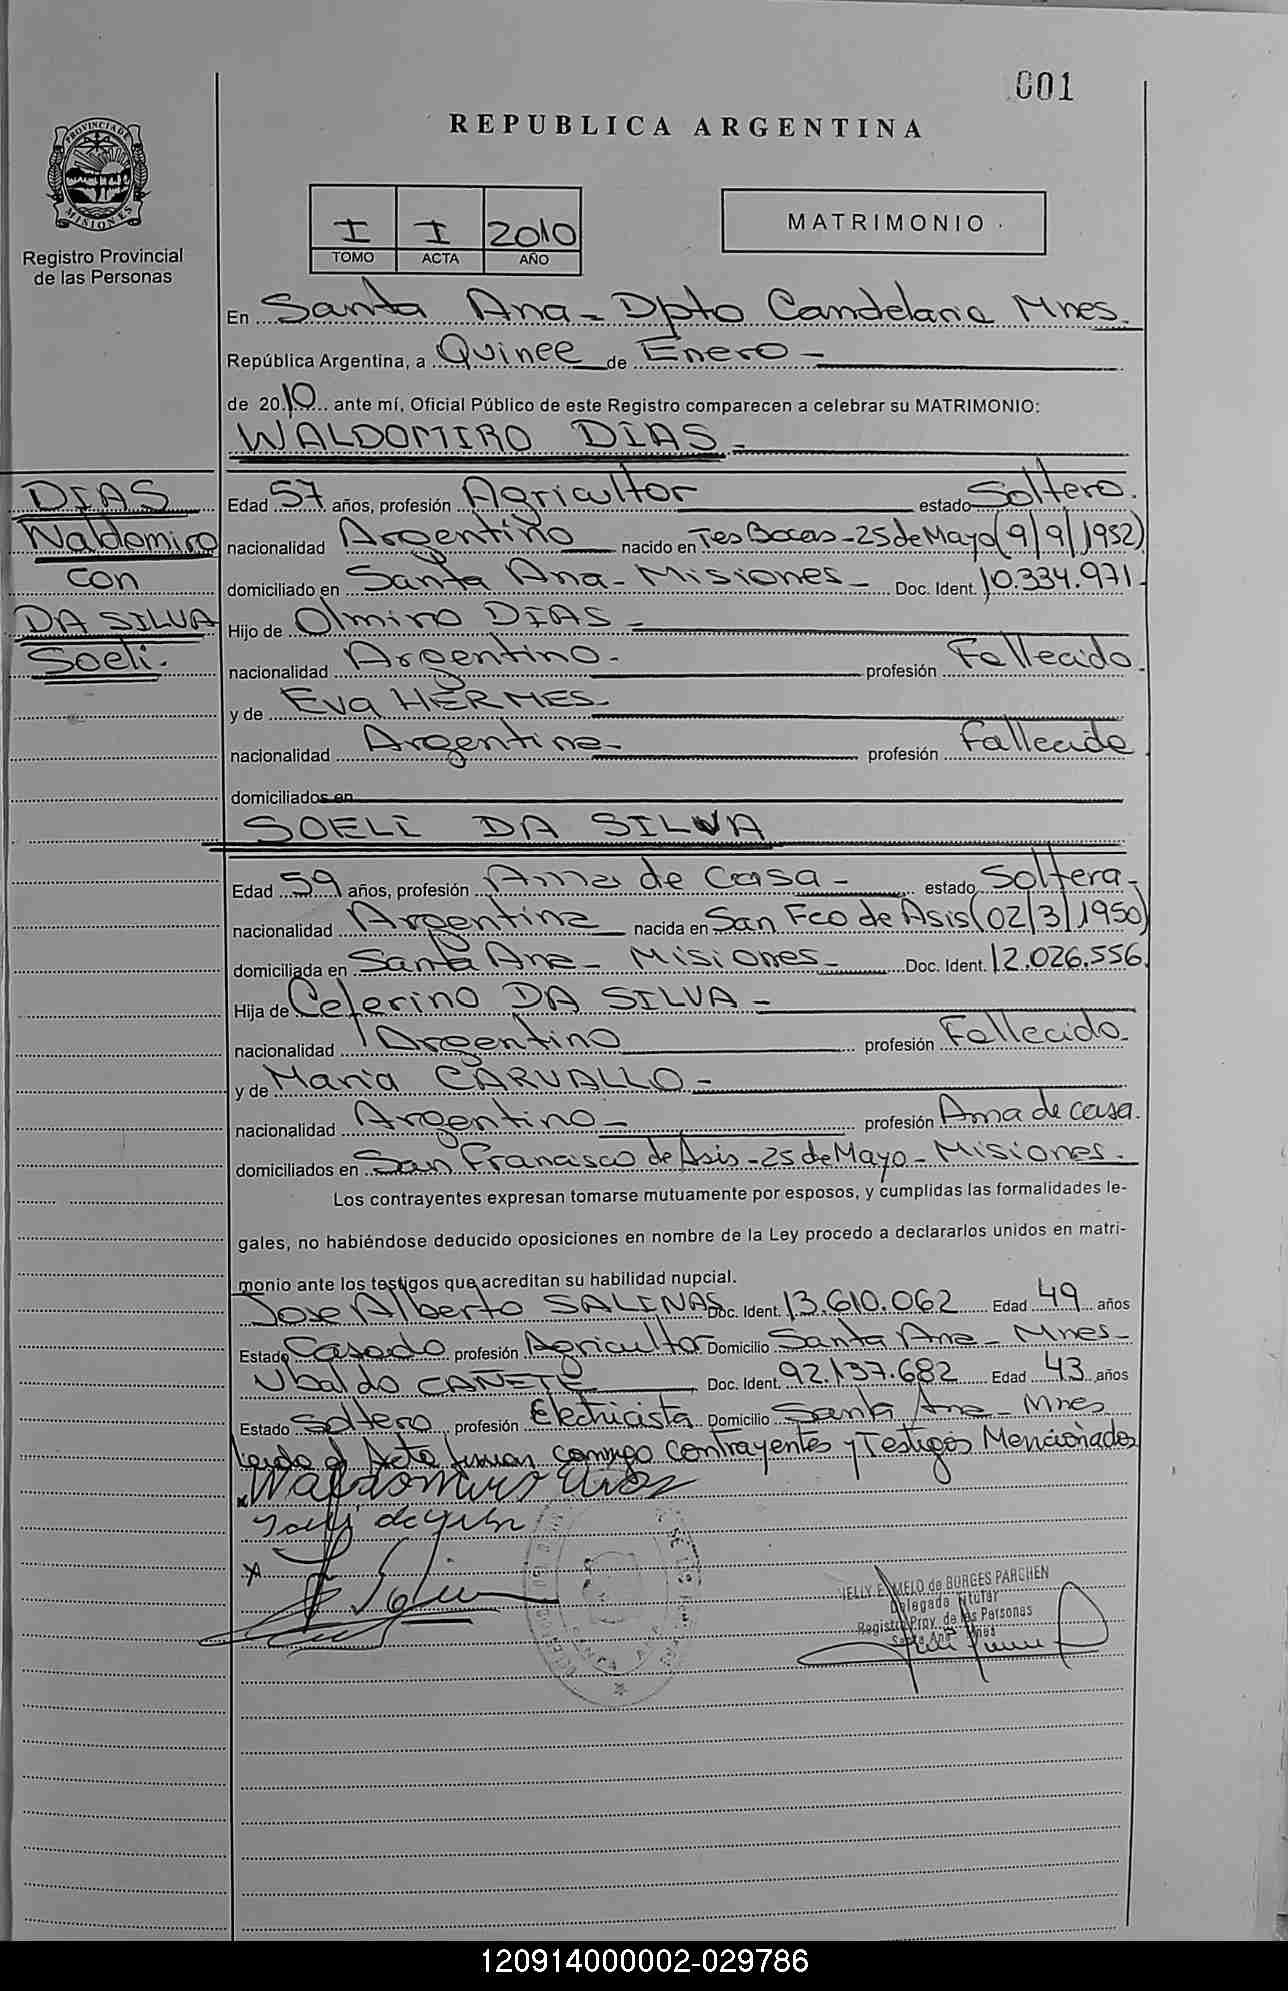 001
REPUBLICA ARGENTINA
PROVINCIA DE MISIONES
Registro Provincial
de las Personas
I I 2010
TOMO ACTA AÑO
MATRIMONIO
En Santa Ana - Dpto Candelaria Mnes.
República Argentina, a Quince de Enero -
de 2010 ante mí, Oficial Público de este Registro comparecen a celebrar su MATRIMONIO:
WALDOMIRO DIAS -
DIAS
Waldomiro
con
DA SILVA
Soeli.
Edad 57 años, profesión Agricultor estado Soltero.
nacionalidad Argentino nacido en Tes Bocas - 25 de Mayo (9/9/1952)
domiciliado en Santa Ana - Misiones - Doc. Ident. 10.334.971
Hijo de Olmiro DIAS -
nacionalidad Argentino - profesión Fallecido.
y de Eva HERMES -
nacionalidad Argentina - profesión Fallecida
domiciliados en
SOELI DA SILVA
Edad 59 años, profesión Ama de Casa - estado Soltera -
nacionalidad Argentina nacida en San Fco de Asis (02/3/1950)
domiciliada en Santa Ana - Misiones - Doc. Ident. 12.026.556
Hija de Ceferino DA SILVA -
nacionalidad Argentino profesión Fallecido -
y de Maria CARVALLO -
nacionalidad Argentino - profesión Ama de casa.
domiciliados en San Francisco de Asis - 25 de Mayo - Misiones.
Los contrayentes expresan tomarse mutuamente por esposos, y cumplidas las formalidades le-
gales, no habiéndose deducido oposiciones en nombre de la Ley procedo a declararlos unidos en matri-
monio ante los testigos que acreditan su habilidad nupcial.
Jose Alberto SALINAS Doc. Ident. 13.610.062 Edad 49 años
Estado Casado profesión Agricultor Domicilio Santa Ana - Mnes -
Ubaldo CAÑETE Doc. Ident. 92.137.682 Edad 43 años
Estado Soltero profesión Electricista Domicilio Santa Ana - Mnes
Leida el Acta firman conmigo Contrayentes y Testigos Mencionados
Waldomiro Dias
NELLY E. MELO de BORGES PARCHEN
Delegada Titular
Registro Prov. de las Personas
Santa Ana Mnes
120914000002-029786